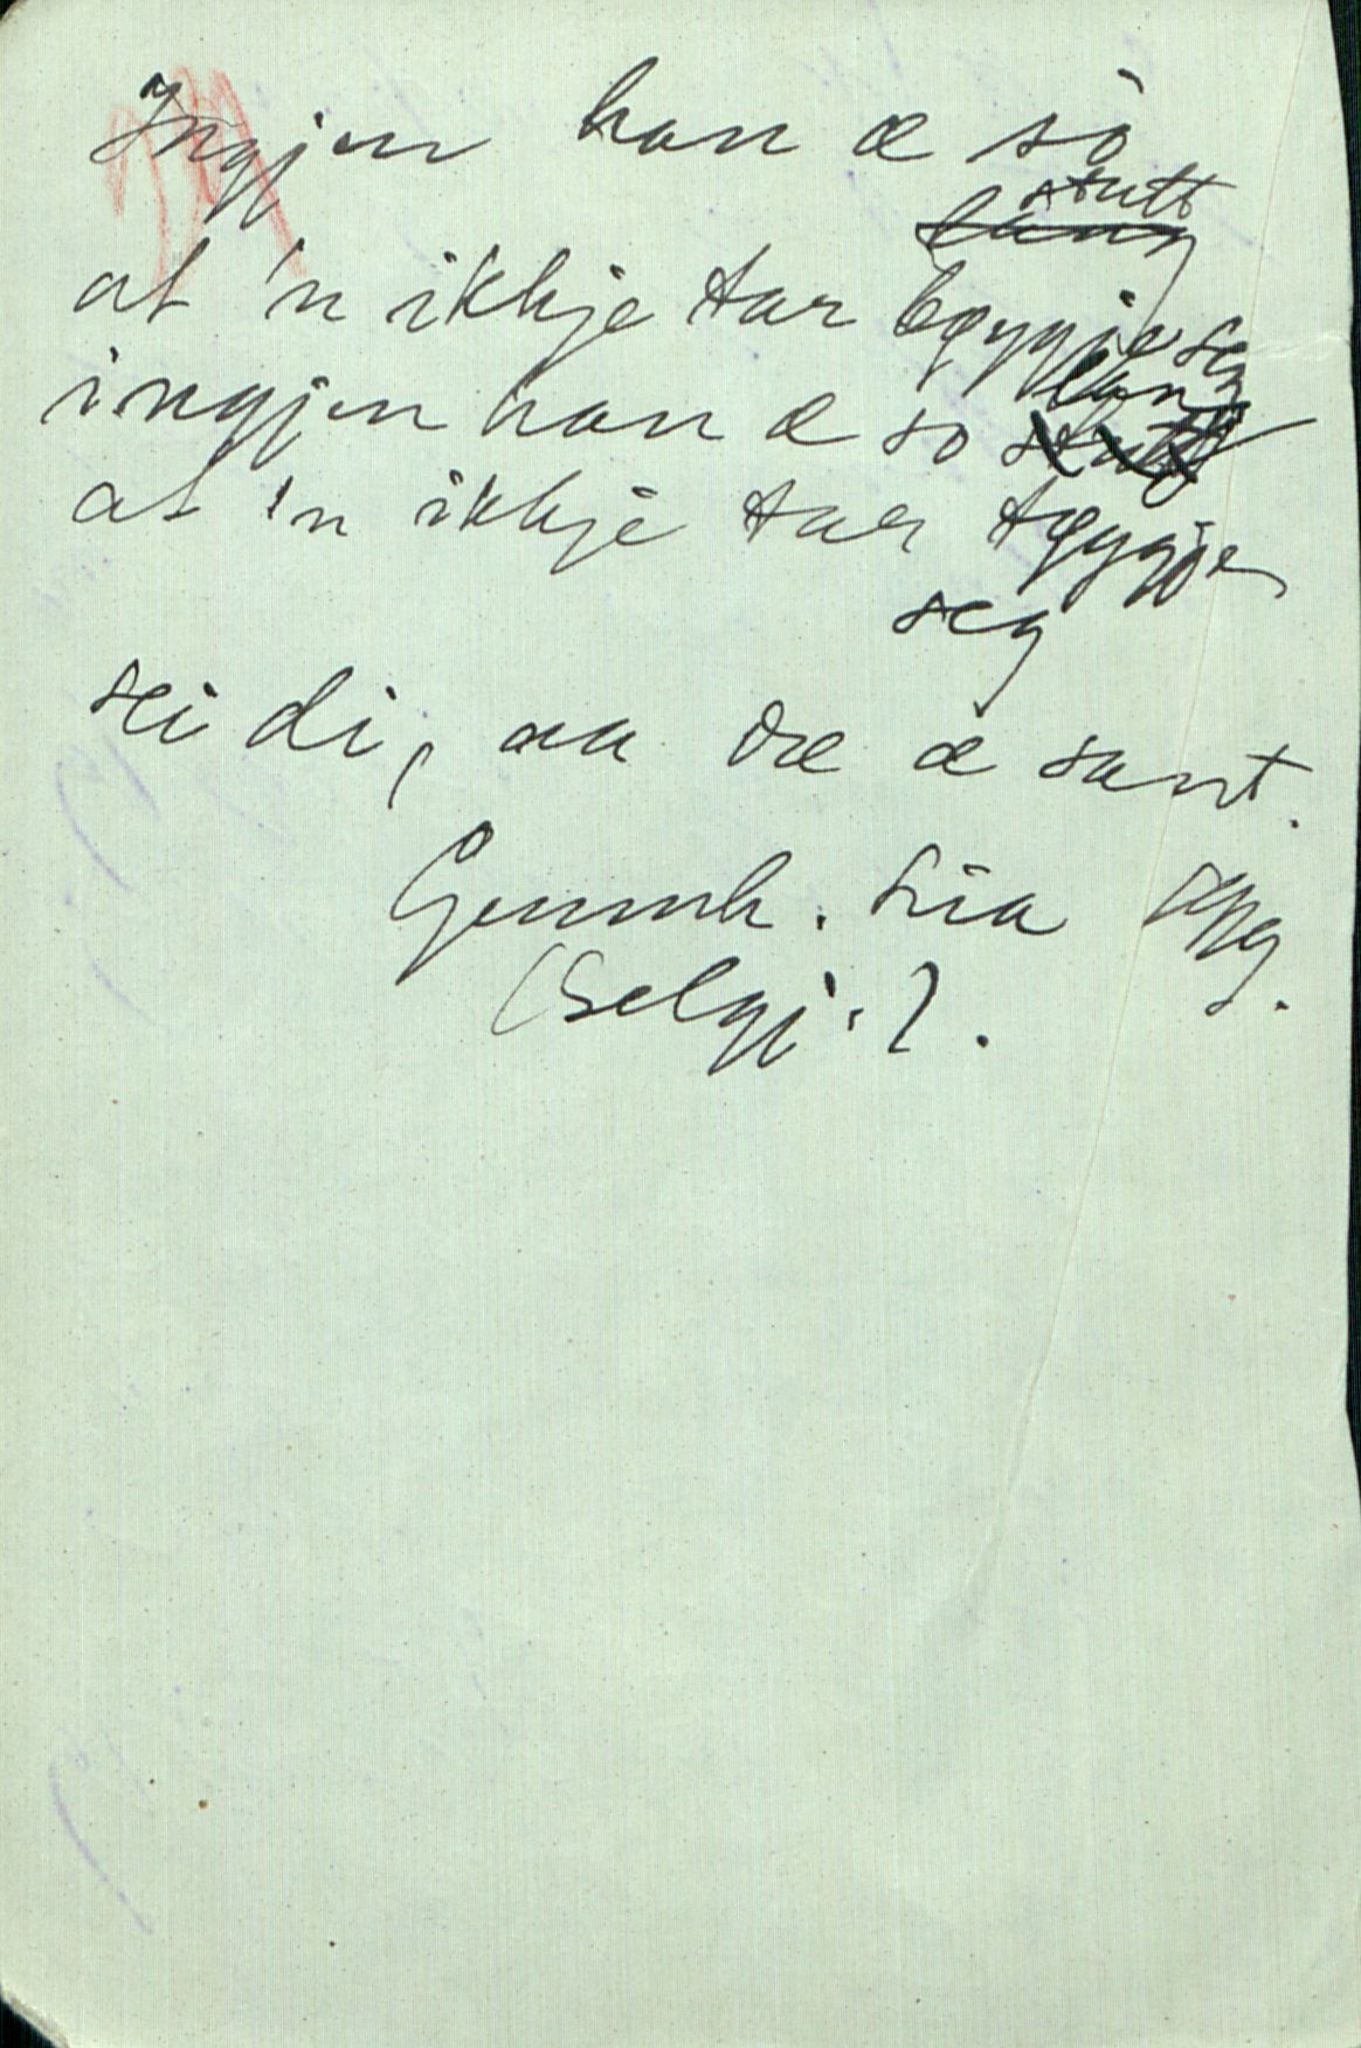 Ingjen han æ so
stutt
lang
at 'n ikkje tar bøygje seg
lang
ingjen han æ so stutt
at 'n ikkje tar tøygje
seg
sei di, aa dæ æ sant.
Gunnh. Lia
(Selgj.).